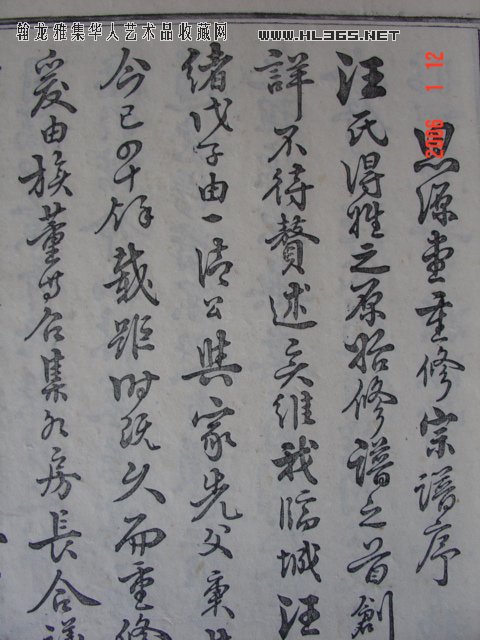 翰龙雅集华人艺术品收藏网
WWW.HL365.NET
2006 1 12
思源堂重修宗谱序
汪氏得姓之原始修譜之首創
詳不待贅述矣維我臨城汪
緒戊子由一清公與家先父秉
今已四十餘載距时既久而重修
爰由族董等合集各房長合議